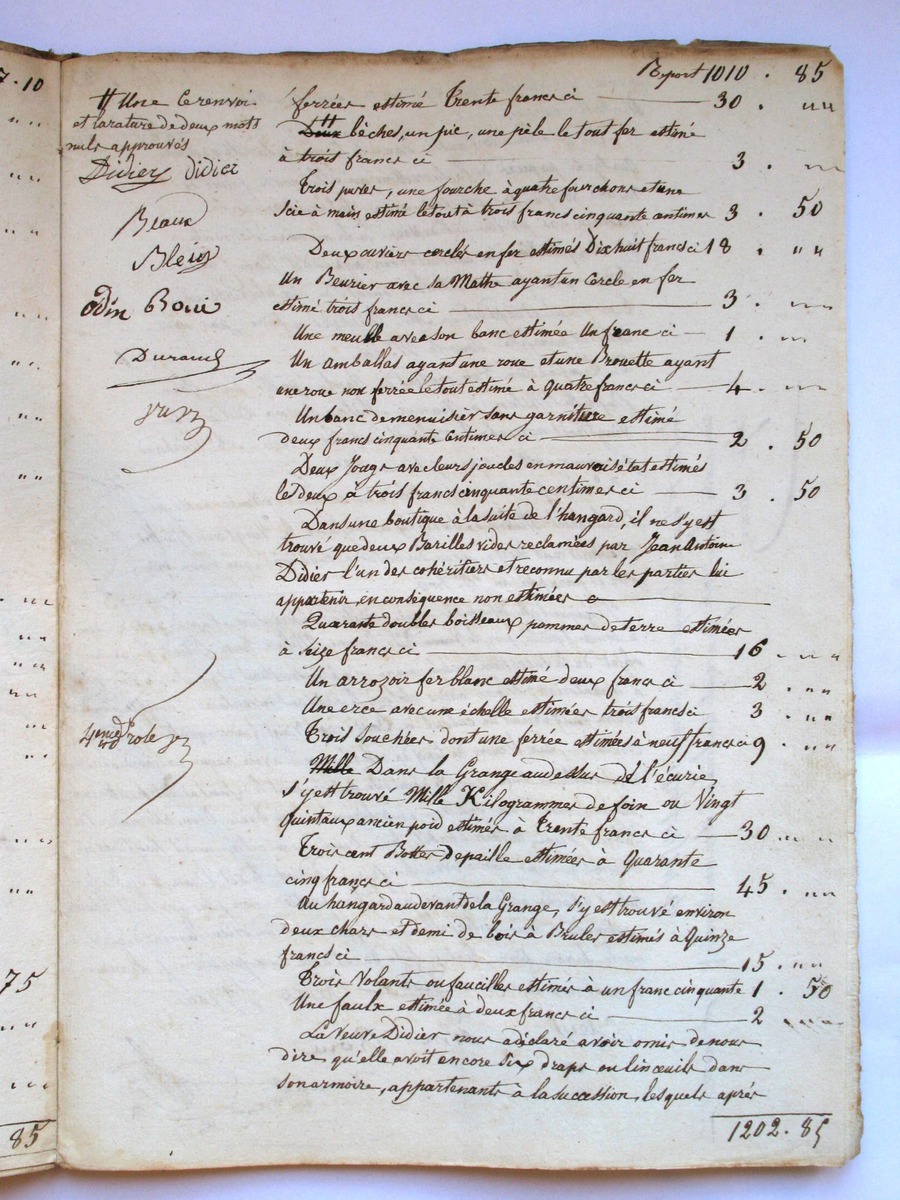 7 . 10
85
75
Report 1010 . 85
# Une le renvoi
et la rature de deux mots
nuls approuvés
Didier didier
Beaux
Blein
odin
Durand
4me et role
ferrées estimé Trente francs ci 30 . ""
Deux # bêches, un pic, une pèle le tout fer estimé
à trois francs ci 3 . ""
Trois , une fourche à quatre fourchons et une
Scie à main estimé le tout à trois francs cinquante centimes 3 . 50
Deux cuviers cerclés en fer estimés Dix huit francs ci 18 . ""
Un Beurier avec sa Mathe ayant un Cercle en fer
estimé trois francs ci 3 . ""
Une meulle avec son banc estimée Un franc ci 1 . ""
Un amballas ayant une roue et une Brouette ayant
une roue non ferrée le tout estimé à quatre francs ci 4 . ""
Un banc de menuisier sans garniture estimé
deux francs cinquante Centimes ci 2 . 50
Deux Jougs avec leurs joucles en mauvois état estimés
les deux à trois francs cinquante centimes ci 3 . 50
Dans une boutique à la suite de l'hangard, il ne s'y est
trouvé que deux Barilles vides reclamées par Jean Antoine
Didier l'un des cohéritiers et reconnu par les parties lui
appartenir, en conséquence non estimées
Quarante doubles boisseaux pommes de terre estimées
à Seize francs ci 16 . ""
Un arrozoir fer blanc estimé deux francs ci 2 . ""
Une erce avec une échelle estimées trois francs ci 3 . ""
Trois souchées dont une ferrée estimées à neuf francs ci 9 . ""
Mille Dans la Grange au dessus de l'écurie,
s'y est trouvé Mille Kilogrammes de foin ou Vingt
quintaux ancien poid estimés à Trente francs ci 30 . ""
Trois cent Bottes de paille estimées à Quarante
cinq francs ci 45 . ""
Au hangard au devant de la Grange, s'y est trouvé environ
deux chars et demi de bois à Bruler estimés à Quinze
francs ci 15 . ""
Trois Volants ou faucilles estimés à un franc cinquante 1 . 50
Une faulx estimée à deux francs ci 2 . ""
La Veuve Didier nous a déclaré avoir omis de nous
dire qu'elle avoit encore Six draps ou linceuils dans
son armoire, appartenants à la succession, lesquels après
1202 . 85